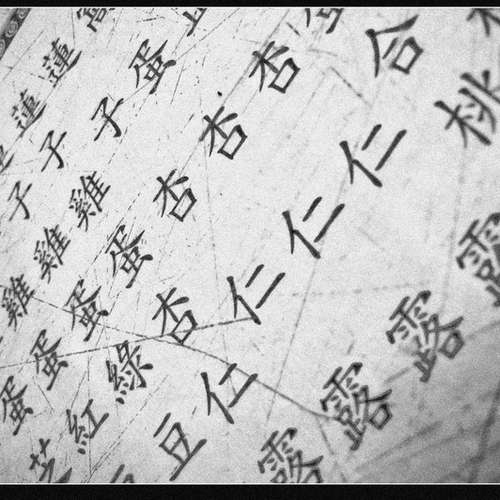 合桃
杏仁露
蛋杏仁露
蓮子杏仁露
蓮子雞蛋杏仁露
子雞蛋綠豆
雞蛋紅
蛋芝